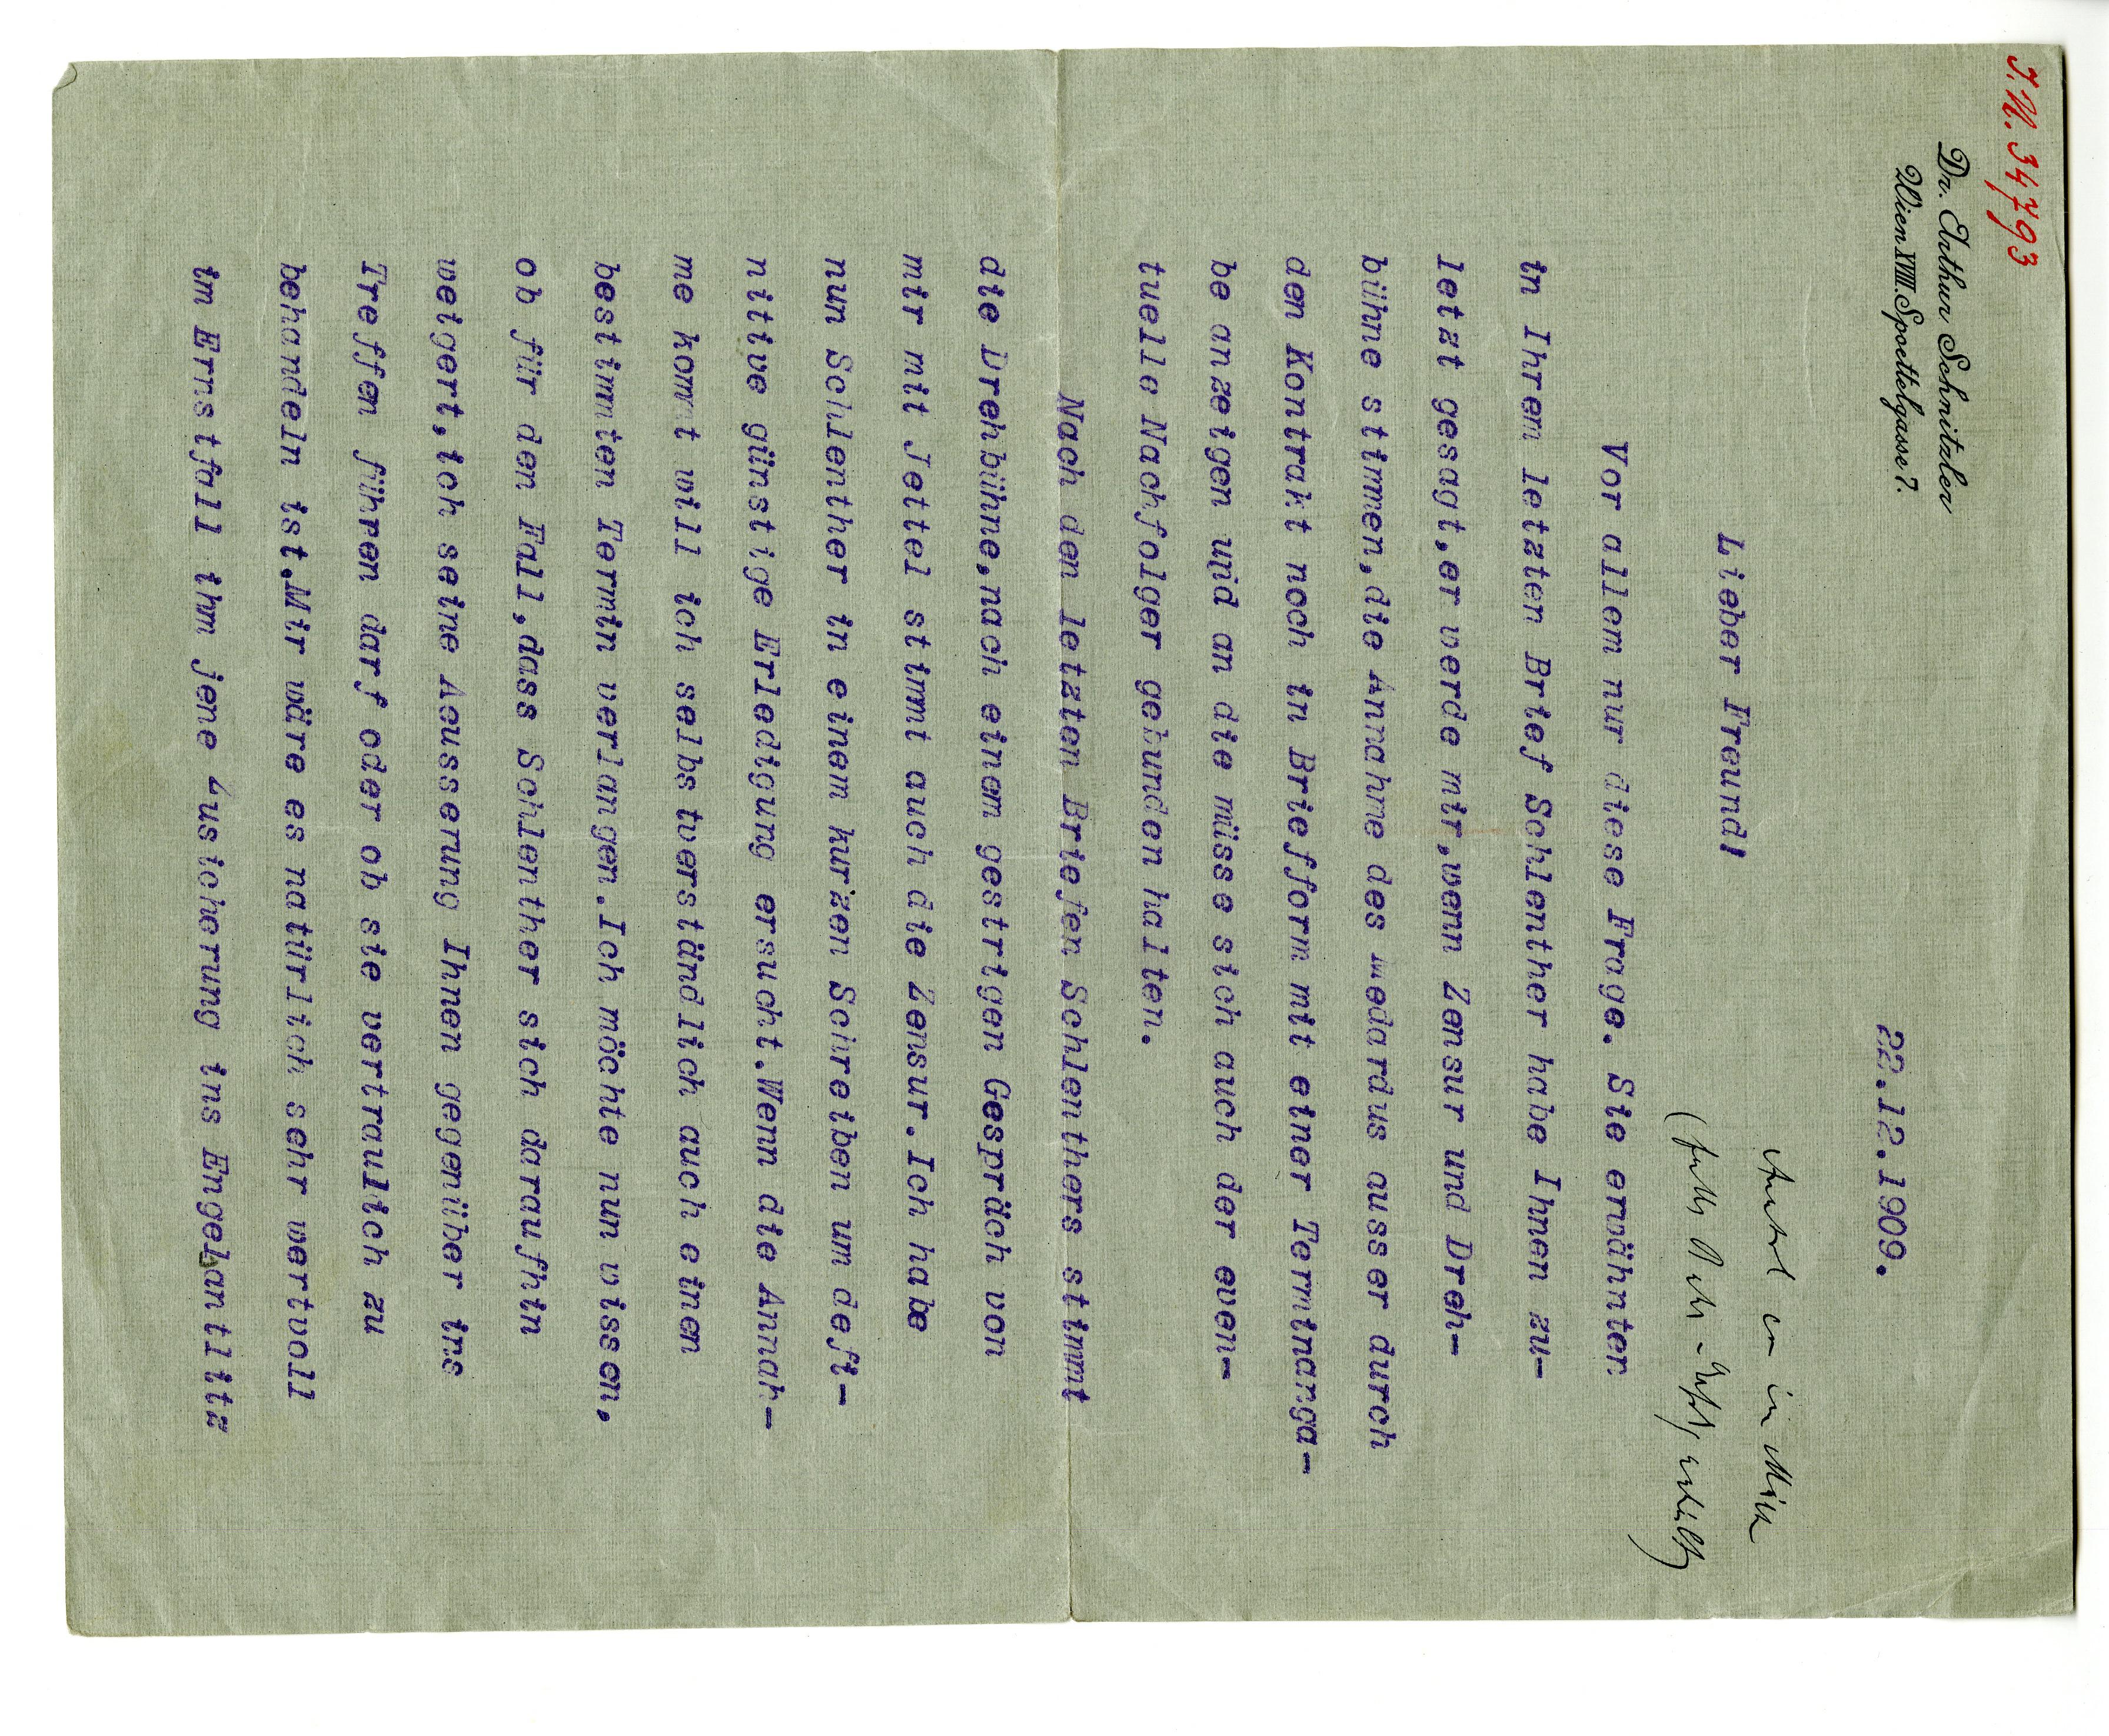 I.N. 34793
Dr. Arthur Schnitzler
Wien XVIII. Spoettelgasse 7.
22.12.1909.
in
Lieber Freund!
Vor allem nur diese Frage. Sie erwähnten
in Ihrem letzten Brief Schlenther habe Ihnen zu-
letzt gesagt,er werde mir,wenn Zensur und Dreh-
bühne stimmen,die Annahme des Medardus ausser durch
den Kontrakt noch in Briefform mit einer Terminanga-
be anzeigen und an die müsse sich auch der even-
tuelle Nachfolger gebunden halten.
Nach den letzten Briefen Schlenthers stimmt
die Drehbühne,nach einem gestrigen Gespräch von
mir mit Jettel stimmt auch die Zensur.Ich habe
nun Schlenther in einem kurzen Schreiben um defi-
nitive günstige Erledigung ersucht.Wenn die Annah-
me kommt will ich selbstverständlich auch einen
bestimmten Termin verlangen.Ich möchte nun wissen,
ob für den Fall,dass Schlenther sich daraufhin
weigert,ich seine Aeusserung Ihnen gegenüber ins
Treffen führen darf oder ob sie vertraulich zu
behandeln ist.Mir wäre es natürlich sehr wertvoll
im Ernstfall ihm jene Zusicherung ins Engelantlitz